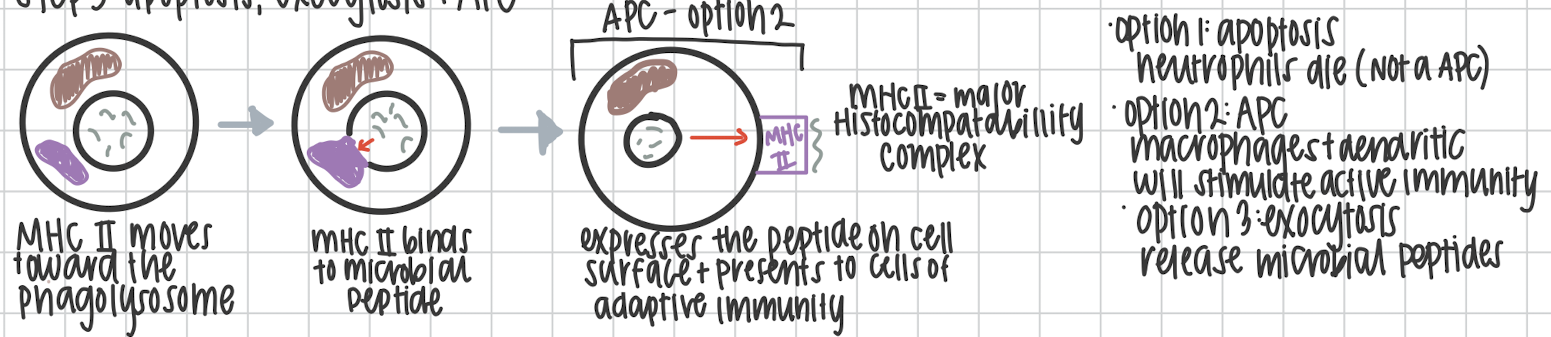 Step 3 apoptosis, exocytosis + APC
MHC II moves
toward the
phagolysosome
MHC II binds
to microbial
peptide
APC - option 2
MHC
II
expresses the peptide on cell
surface + presents to cells of
adaptive immunity
MHC II = major
Histocompatabillity
complex
· option 1: apoptosis
neutrophils die (Not a APC)
· option 2: APC
macrophages + dendritic
will stimulate active immunity
· option 3: exocytosis
release microbial peptides